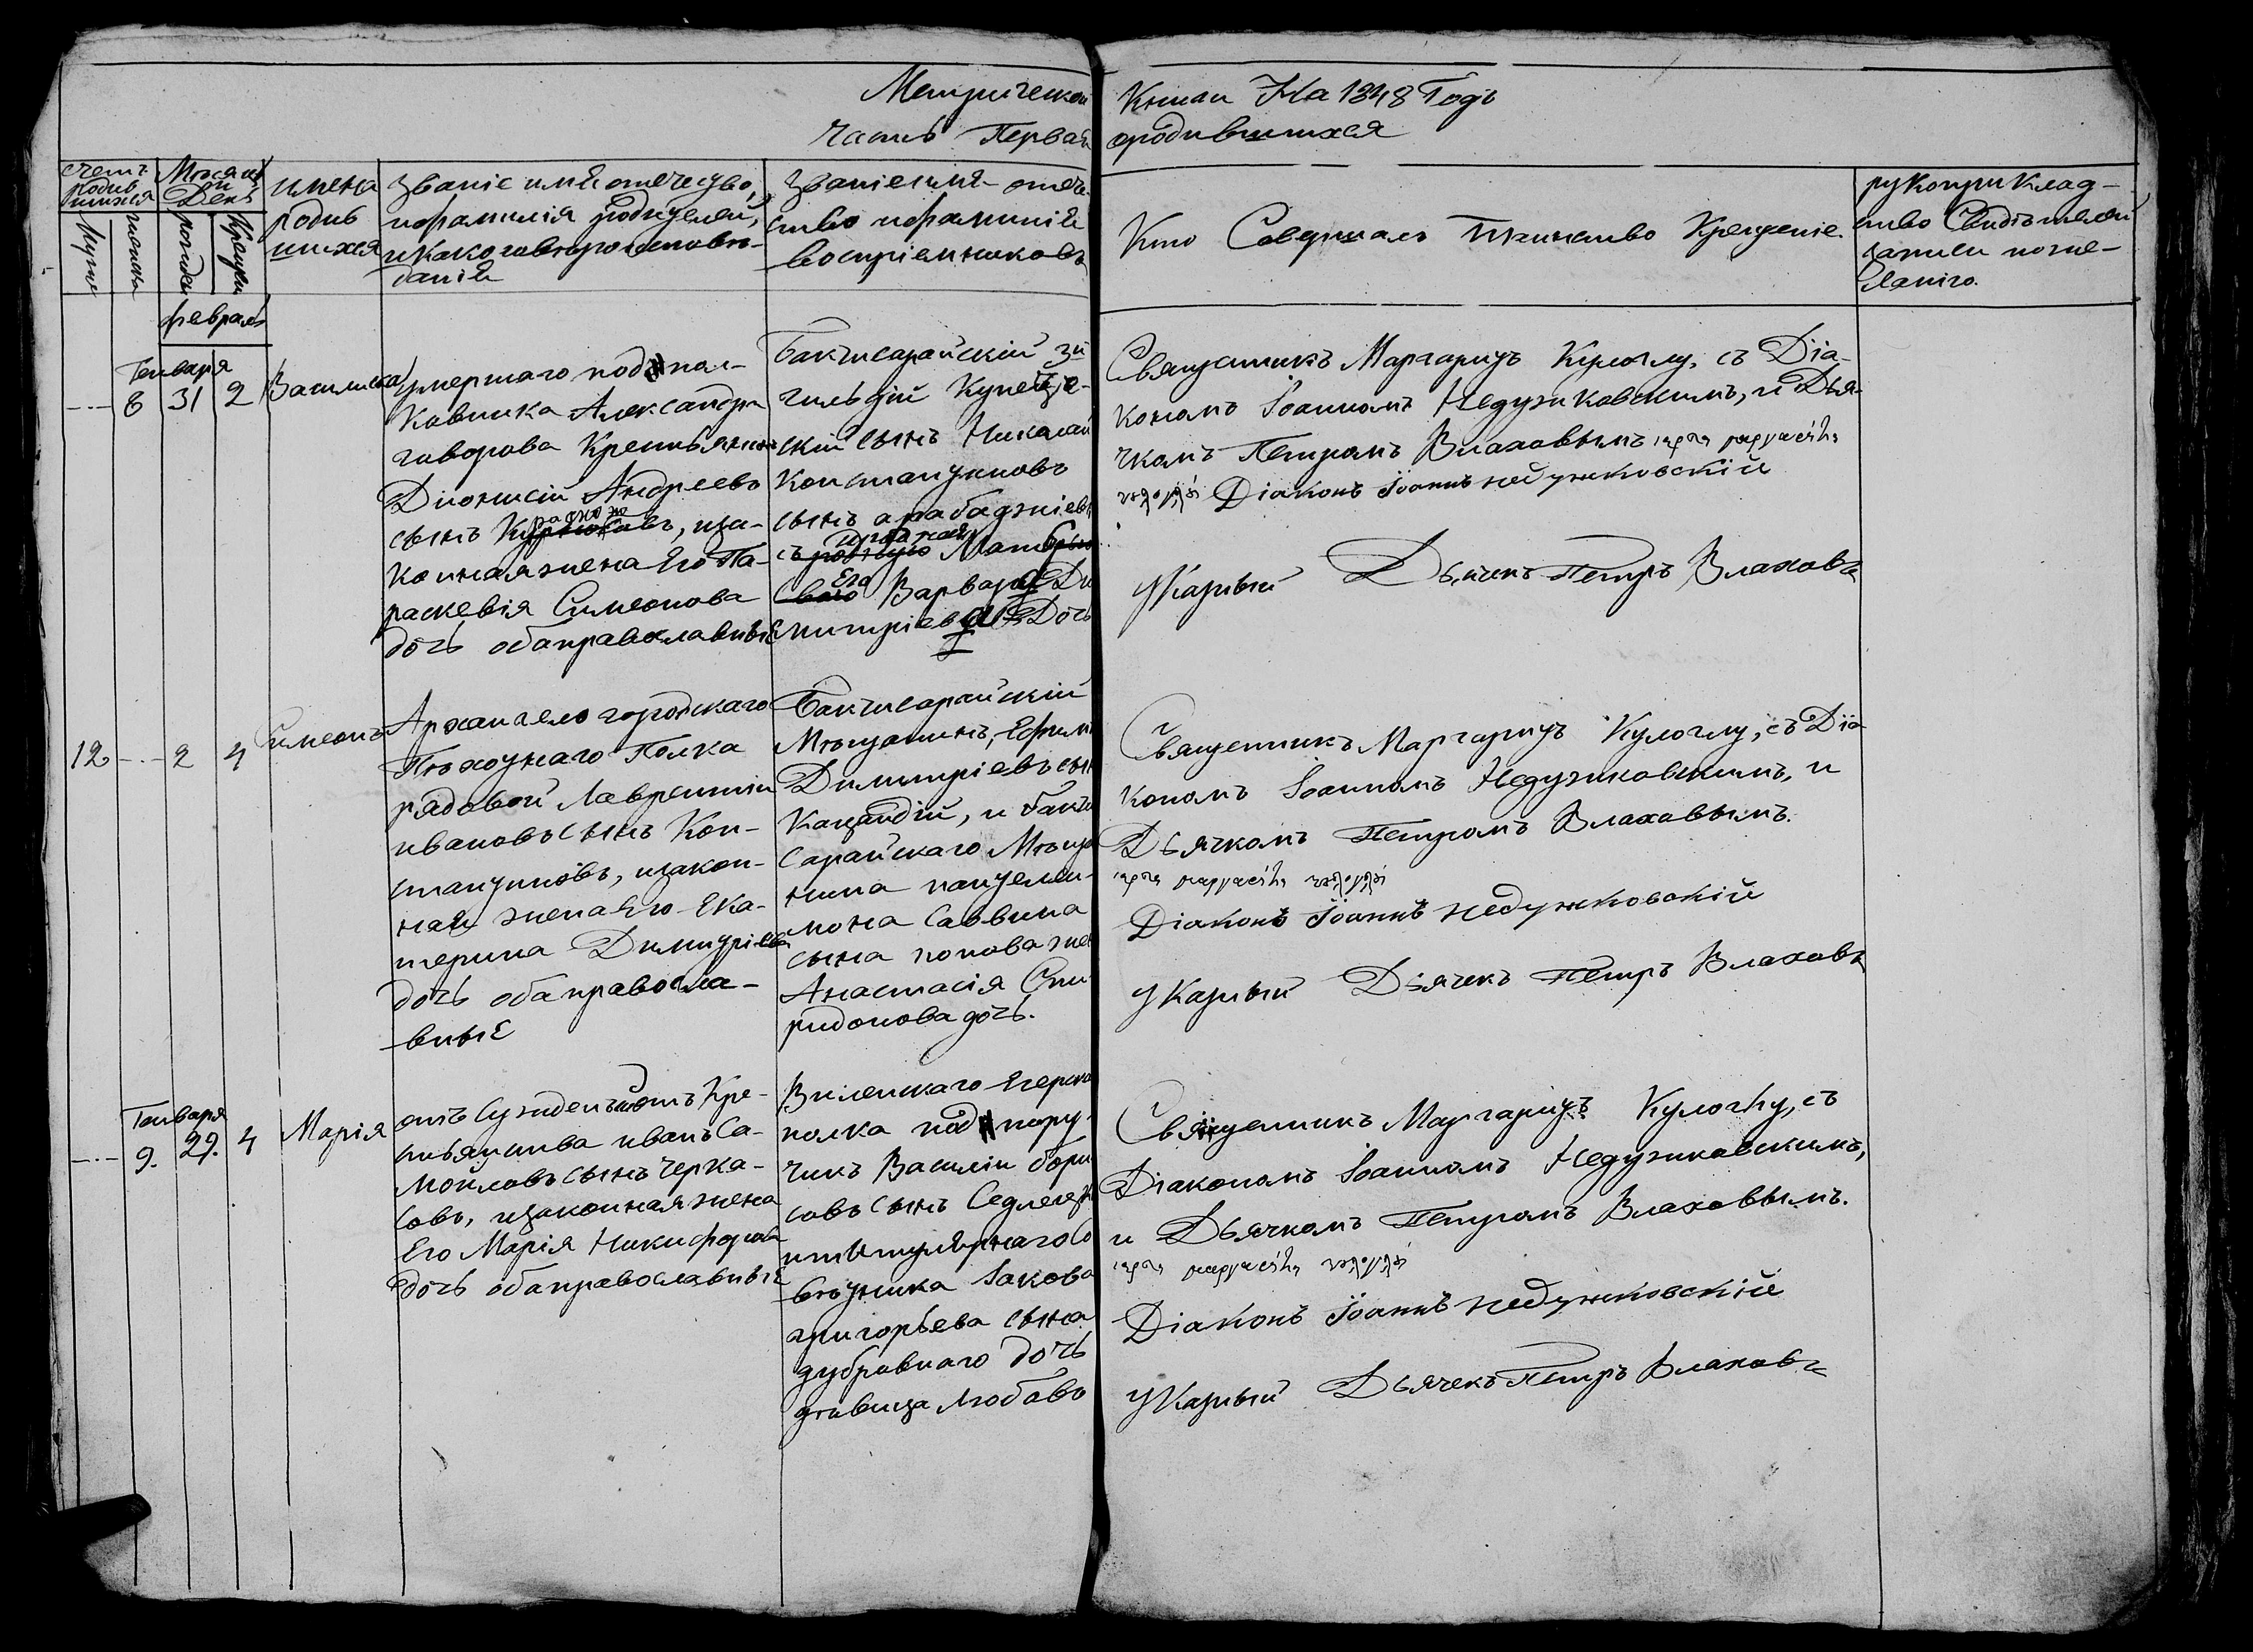 Метрической Книги На 1848 Годъ
Часть Первая ородившихся
счетъ родив шихся
Мѣсяцъ и День
имена родив шихся
званіе имя отечество,
ифамилія родителей,
икакого вѣроисповѣ-
данія
званіе имя- отече-
ство ифамилія
воспріемниковъ
Кто Совершалъ Таинство Крещенія.
рукоприклад-
ство Свидѣтелей
записи поже-
ланію.
февраль
Генваря
8 31 2
Василиса
умершаго подпол-
ковника Александра
говорова Крестьянинъ
Діонисій Андреевъ
сынъ
конная жена Его Па-
раскевія Симеонова
дочь оба православныE
Бакчисарайскій 3й
гильдіи Купече-
скій сынъ Николай
Константиновъ
сынъ арабаджіевъ
Его Варвара Ди
митріева Дочь
Священникъ Маргаритъ Кулоглу, съ Діа-
кономъ Іоанномъ Недузиковскимъ, и Дья-
чкомъ Петромъ Влаховымъ
Діаконъ Іоаннъ недужковскій
УКазный Дьячекъ Петръ Влаховъ
12 2 4
Симеонъ
Архангелогородскаго
Пѣхотнаго Полка
рядовой Лаврентій
ивановъ сынъ Кон-
стантиновъ, изакон-
ная жена Его Ека-
терина Димитріева
дочь оба правосла-
-вныE
Бакчисарайскій
Мѣщанинъ, Ефимъ
Димитріевъ сынъ
и бакчи
сарайскаго Мѣща
нина пантелей-
мона Саввина
сына попова жена
Анастасія Спи
ридонова дочь.
Священникъ Маргаритъ Кулоглу, съ Діа-
кономъ Іоанномъ Недузиковскимъ, и
Дьячкомъ Петромъ Влаховымъ.
Діаконъ Іоаннъ недужковскій
УКазный Дьячекъ Петръ Влаховъ
Генваря
9. 29. 4
Марія
отъ Кре-
стьянства иванъ Са-
мойловъ сынъ Черка-
совъ, изаконная жена
Его Марія Никифорова
дочь оба православныE
Виленскаго Егерска
полка подпору-
чикъ Василій бори
совъ сынъ
ититулярнаго Со
вѣтника Іакова
григорьева сына
дубравнаго дочь
дѣвица Любовь
Священникъ Маргаритъ Кулоглу, съ
Діакономъ Іоанномъ Недузиковскимъ,
и Дьячкомъ Петромъ Влаховымъ.
Діаконъ Іоаннъ недужковскій
УКазный Дьячекъ Петръ Влаховъ